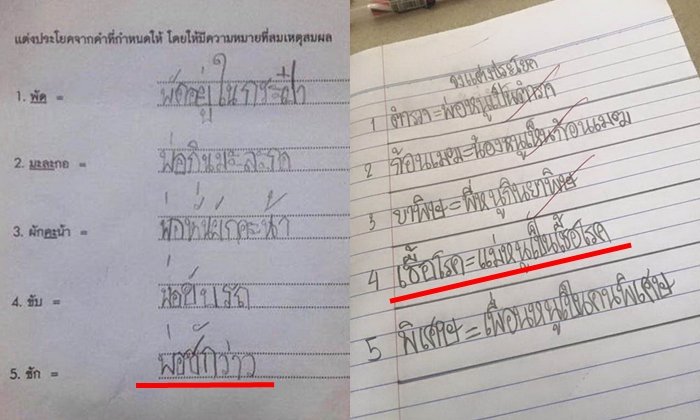 แต่งประโยคจากคำที่กำหนดให้ โดยให้มีความหมายที่สมเหตุสมผล
1. พัด = พัดอยู่ในกระเป๋า
2. มะละกอ = พ่อกินมะละกอ
3. ผักคะน้า = พ่อหั่นผักคะน้า
4. ขับ = พ่อขับรถ
5. ชัก = พ่อชักว่าว
จงแต่งประโยค
1 ตำรวจ = พ่อหนูเป็นตำรวจ
2 ก้อนเมฆ = น้องหนูเห็นก้อนเมฆ
3 ยาพิษ = พี่หนูกินยาพิษ
4 เชื้อโรค = แม่หนูเป็นเชื้อโรค
5 พิเศษ = เพื่อนหนูเป็นคนพิเศษ